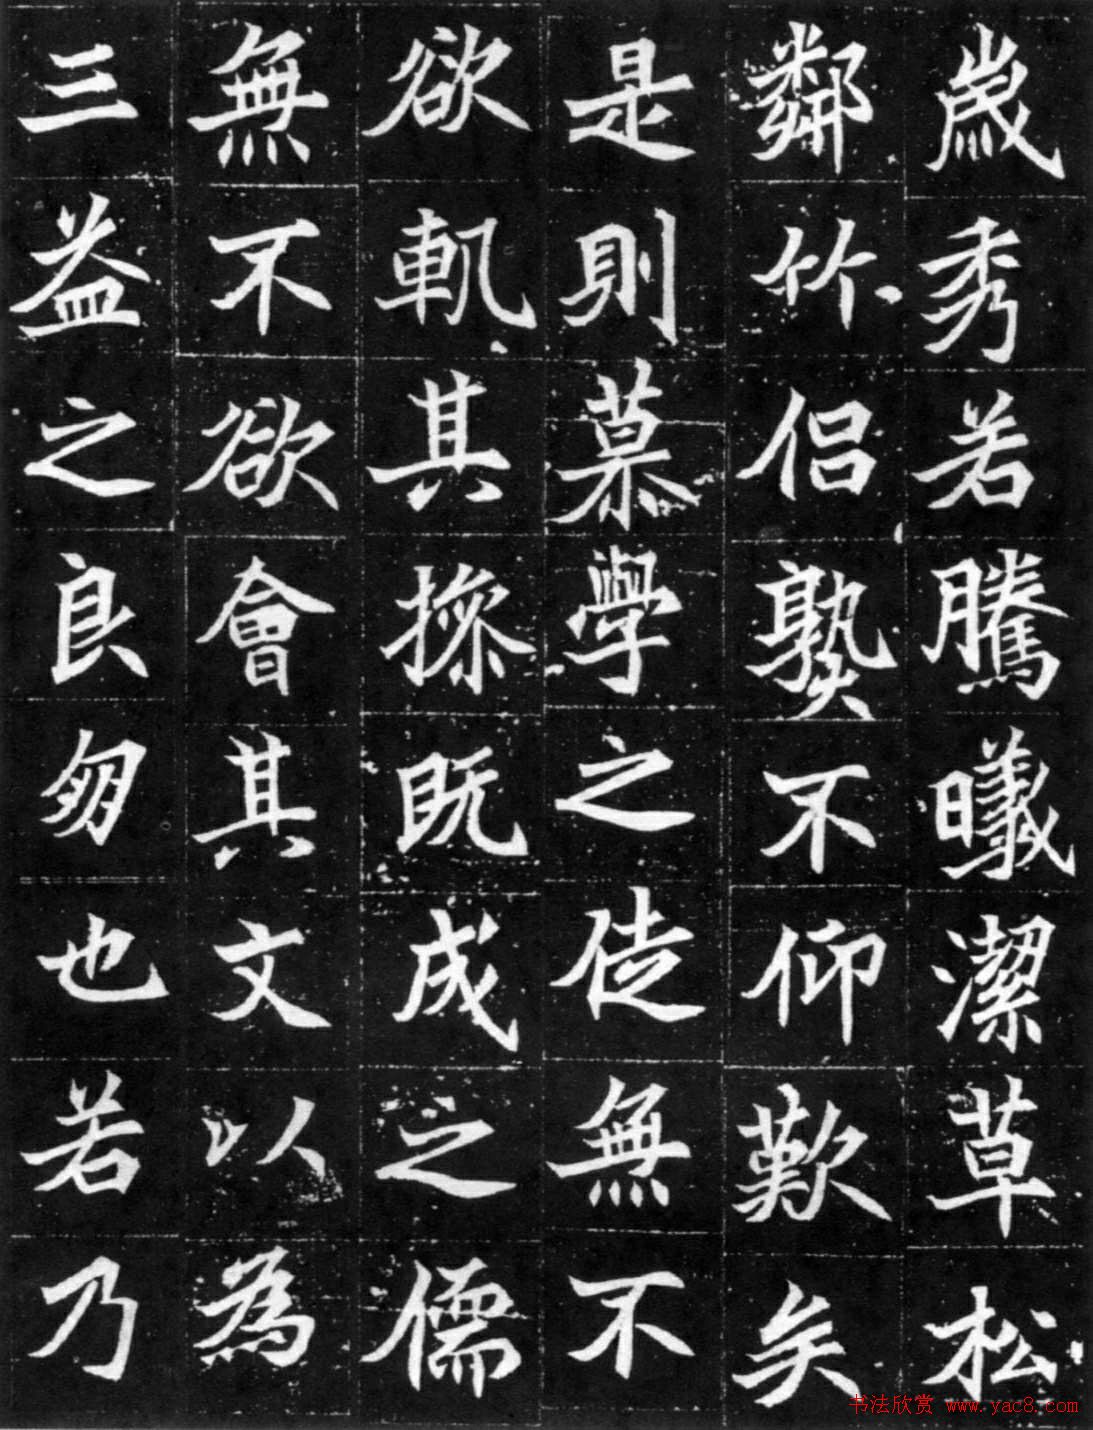 歲秀若騰曦潔草松
鄰竹侣孰不仰歎矣
是則慕學之徒無不
欲軌其操既成之儒
無不欲會其文以為
三益之良朋也若乃
书法欣赏 www.yac8.com